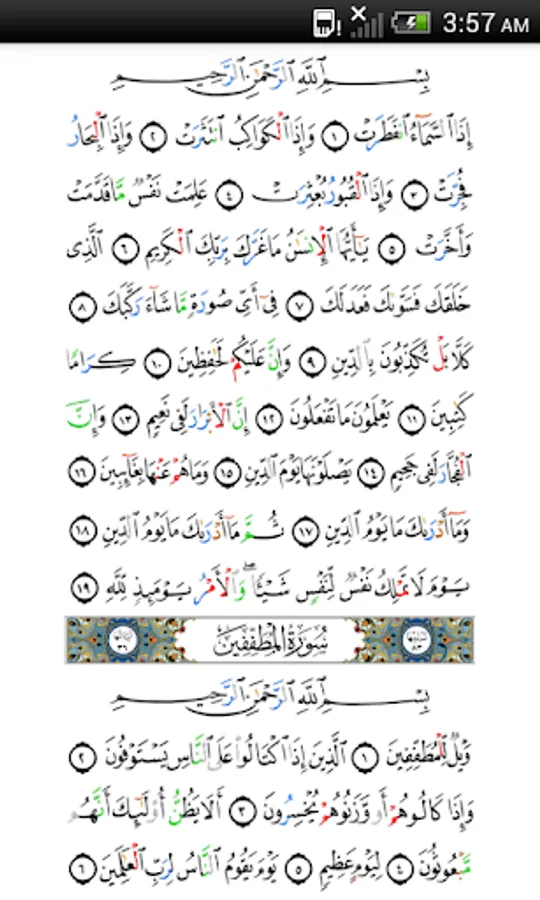 3:57 AM
بِسْمِ ٱللَّهِ ٱلرَّحْمَٰنِ ٱلرَّحِيمِ
إِذَا ٱلسَّمَآءُ ٱنفَطَرَتْ ١ وَإِذَا ٱلْكَوَاكِبُ ٱنتَثَرَتْ ٢ وَإِذَا ٱلْبِحَارُ
فُجِّرَتْ ٣ وَإِذَا ٱلْقُبُورُ بُعْثِرَتْ ٤ عَلِمَتْ نَفْسٌ مَّا قَدَّمَتْ
وَأَخَّرَتْ ٥ يَٰٓأَيُّهَا ٱلْإِنسَٰنُ مَا غَرَّكَ بِرَبِّكَ ٱلْكَرِيمِ ٦ ٱلَّذِى
خَلَقَكَ فَسَوَّىٰكَ فَعَدَلَكَ ٧ فِىٓ أَىِّ صُورَةٍ مَّا شَآءَ رَكَّبَكَ ٨
كَلَّا بَلْ تُكَذِّبُونَ بِٱلدِّينِ ٩ وَإِنَّ عَلَيْكُمْ لَحَٰفِظِينَ ١٠ كِرَامًا
كَٰتِبِينَ ١١ يَعْلَمُونَ مَا تَفْعَلُونَ ١٢ إِنَّ ٱلْأَبْرَارَ لَفِى نَعِيمٍ ١٣ وَإِنَّ
ٱلْفُجَّارَ لَفِى جَحِيمٍ ١٤ يَصْلَوْنَهَا يَوْمَ ٱلدِّينِ ١٥ وَمَا هُمْ عَنْهَا بِغَآئِبِينَ ١٦
وَمَآ أَدْرَىٰكَ مَا يَوْمُ ٱلدِّينِ ١٧ ثُمَّ مَآ أَدْرَىٰكَ مَا يَوْمُ ٱلدِّينِ ١٨
يَوْمَ لَا تَمْلِكُ نَفْسٌ لِّنَفْسٍ شَيْـًٔا ۖ وَٱلْأَمْرُ يَوْمَئِذٍ لِّلَّهِ ١٩
سُورَةُ الْمُطَفِّفِينَ
بِسْمِ ٱللَّهِ ٱلرَّحْمَٰنِ ٱلرَّحِيمِ
وَيْلٌ لِّلْمُطَفِّفِينَ ١ ٱلَّذِينَ إِذَا ٱكْتَالُوا۟ عَلَى ٱلنَّاسِ يَسْتَوْفُونَ ٢
وَإِذَا كَالُوهُمْ أَو وَّزَنُوهُمْ يُخْسِرُونَ ٣ أَلَا يَظُنُّ أُو۟لَٰٓئِكَ أَنَّهُم
مَّبْعُوثُونَ ٤ لِيَوْمٍ عَظِيمٍ ٥ يَوْمَ يَقُومُ ٱلنَّاسُ لِرَبِّ ٱلْعَٰلَمِينَ ٦